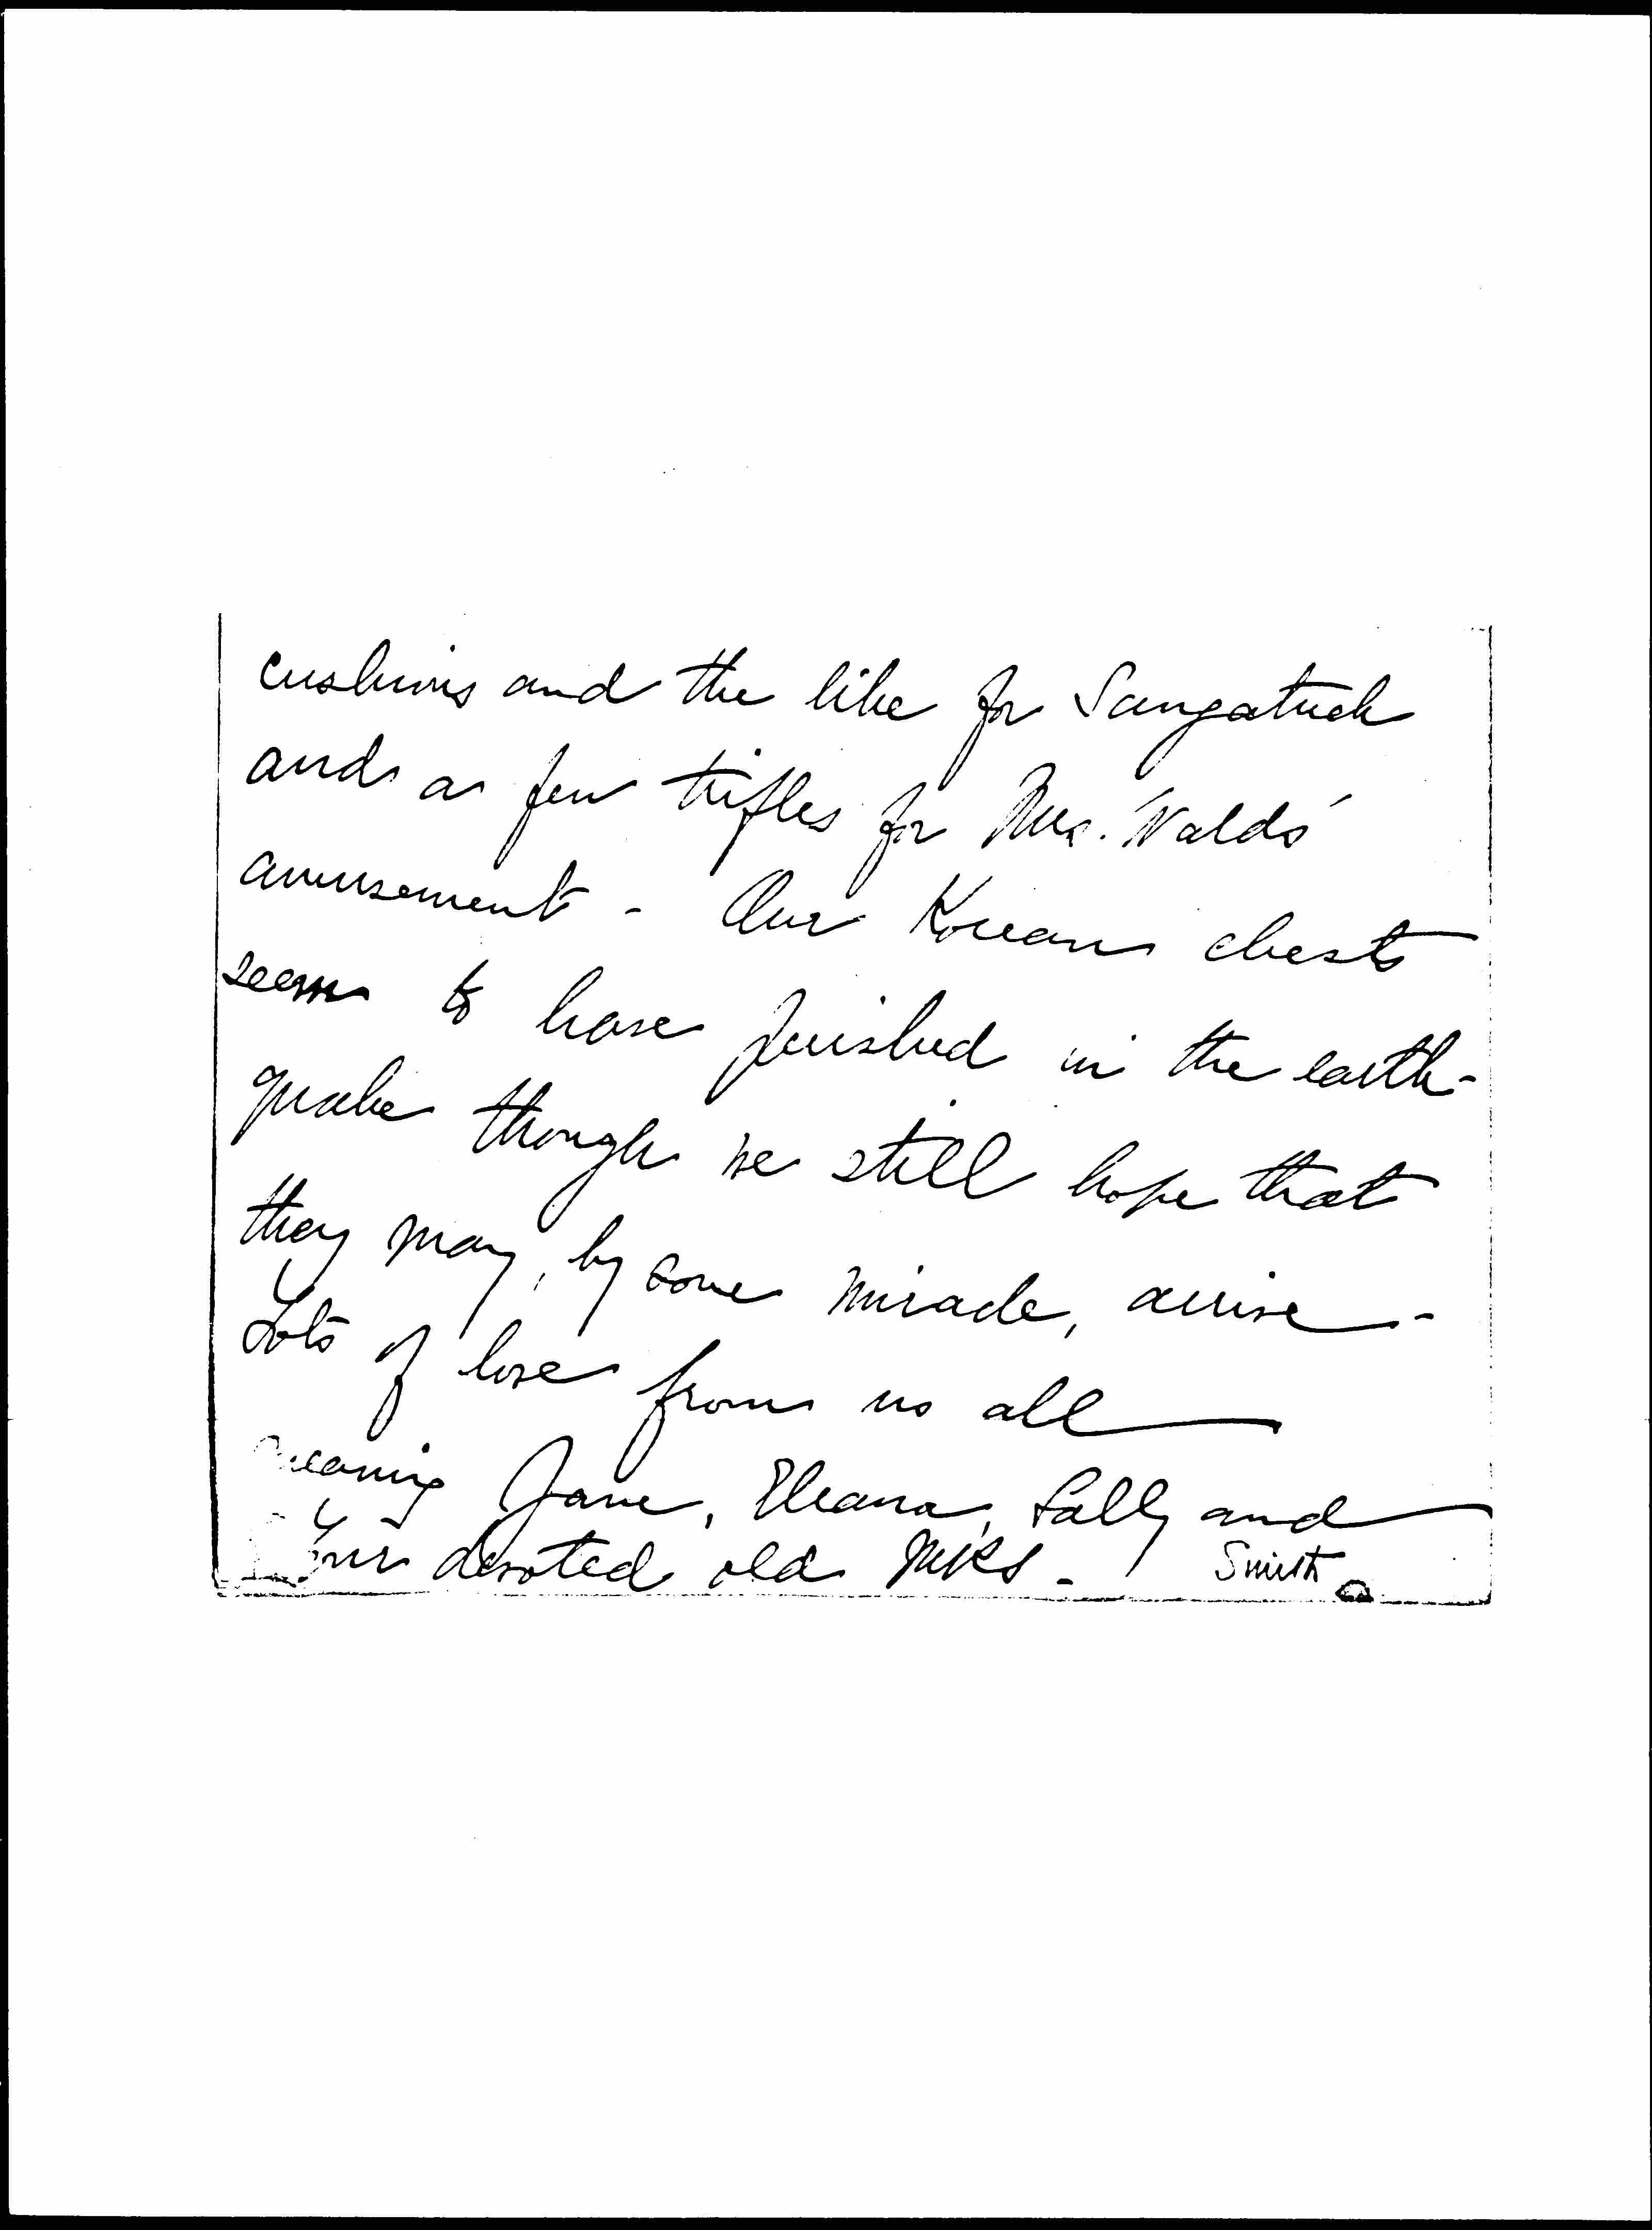 cushions and the like for Saugatuck
and a few trifles for Mrs. Walds'
amusement - Our Korean chests
seem to have perished in the earth-
quake though we still hope that
they may, by some miracle, arrive -
Lots of love from us all
meaning Jane, Eleana, Sally and
Your devoted old MKS - Smith